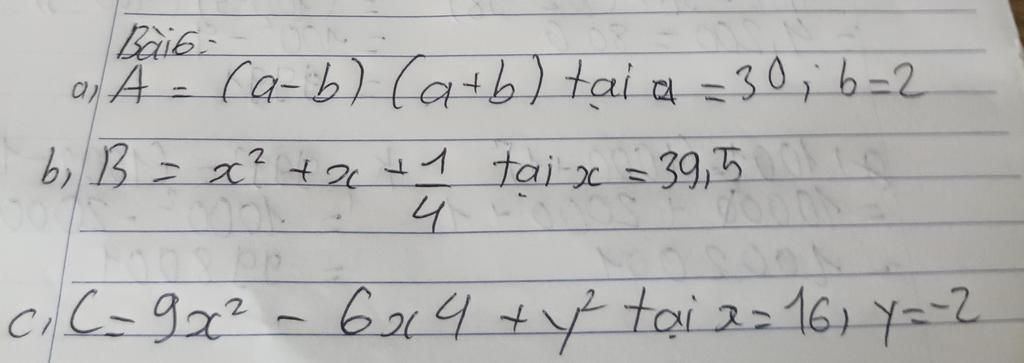 Bài 6:
a, A = (a-b) (a+b) tại a = 30; b=2
b, B = x² + x + 1/4 tại x = 39,5
c, C = 9x² - 6x4 + y² tại x = 16, y = -2